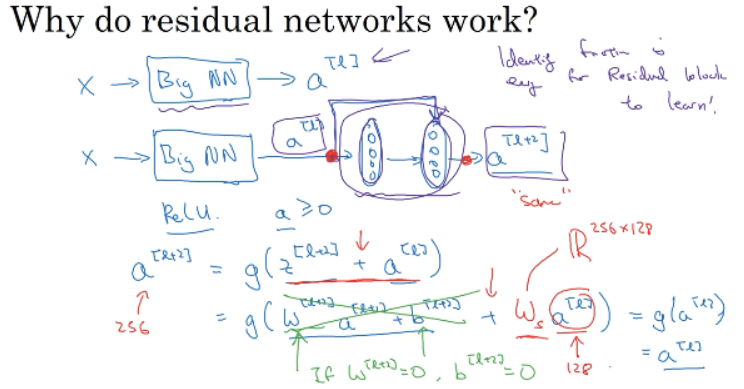 Why do residual networks work?
X → Big NN → a^[l]
Identity function is
easy for Residual block
to learn!
X → Big NN → a^[l] → a^[l+2]
"same"
ReLU. a ≥ 0
ℝ^256×128
a^[l+2] = g(z^[l+2] + a^[l])
256
= g(W^[l+2] a^[l+1] + b^[l+2] + W_s a^[l]) = g(a^[l])
= a^[l]
If W^[l+2] = 0, b^[l+2] = 0
128